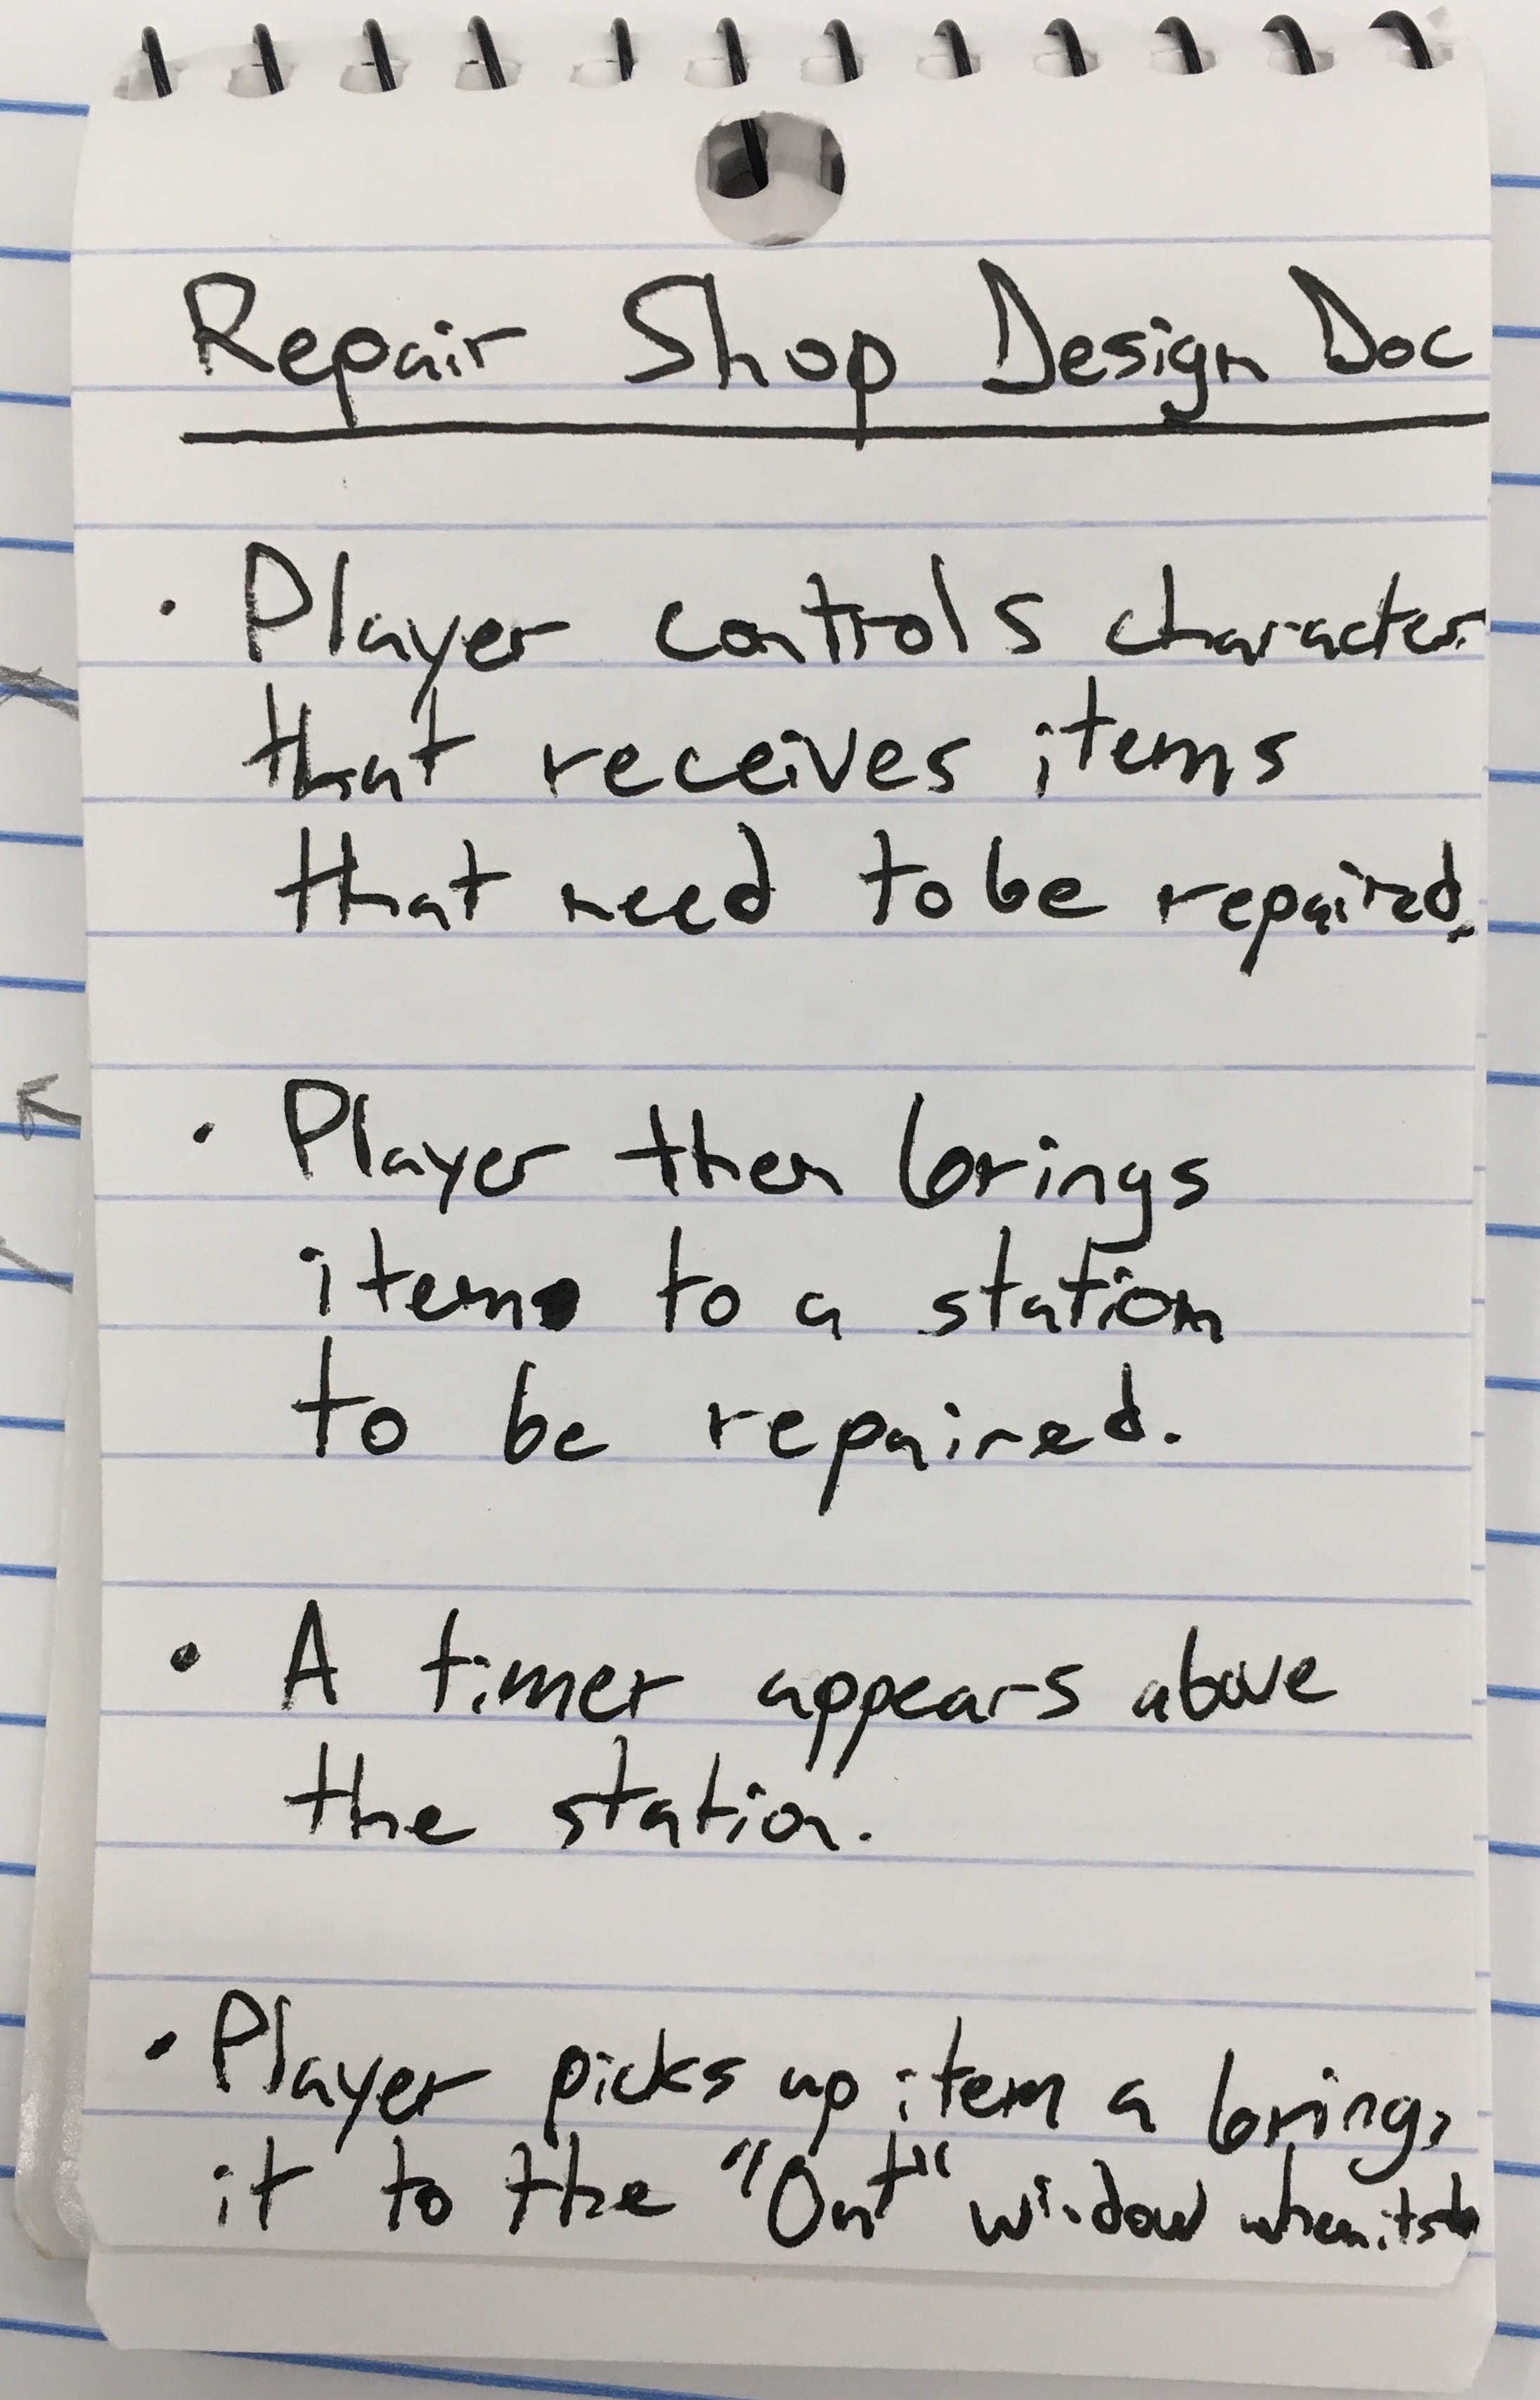 Repair Shop Design Doc
• Player controls character
that receives items
that need to be repaired.
• Player then brings
item to a station
to be repaired.
• A timer appears above
the station.
• Player picks up item a brings
it to the "Out" window when its